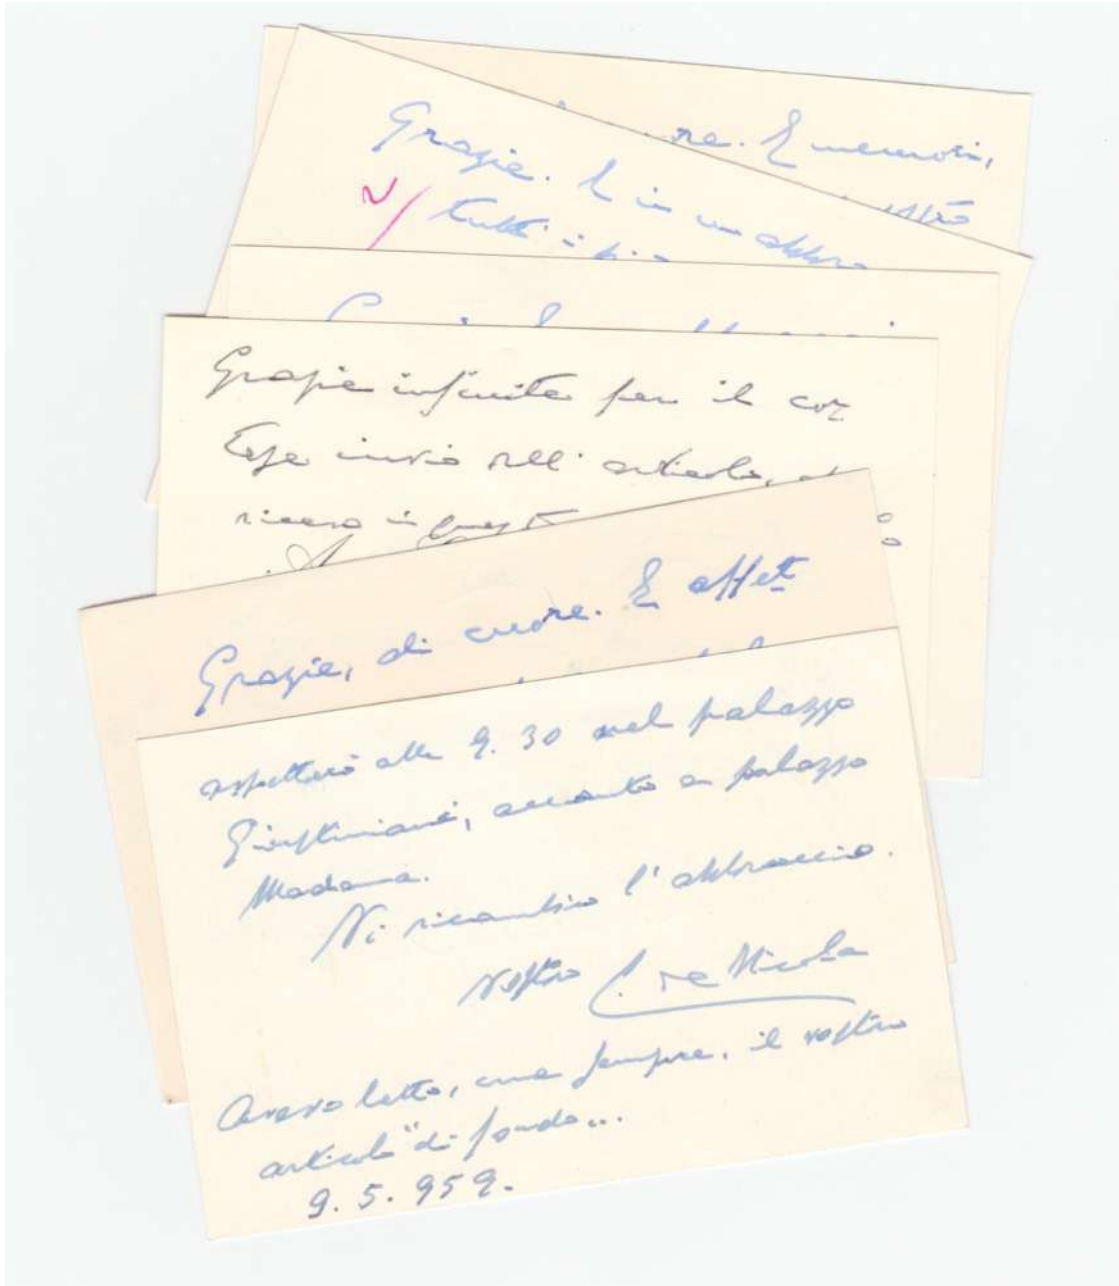 re. E memori,
Grazie. E in un abbra
tutti i
Grazie infinite per il cor
tese invio dell' articolo,
ricevo in questo
Grazie, di cuore. E affett
aspetterò alle 9.30 nel palazzo
Giustiniani, accanto a palazzo
Madama.
Vi ricambio l' abbraccio.
vostro E. De Nicola
Avevo letto, come sempre, il vostro
articolo "di fondo...
9.5.959.